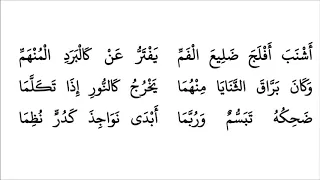 أَشْنَبَ أَفْلَجَ ضَلِيعَ الْفَمِّ يَفْتَرُّ عَنْ كَالْبَرَدِ الْمُنْهَمِّ
وَكَانَ بَرَّاقَ الثَّنَايَا مِنْهُمَا يَخْرُجُ كَالنُّورِ إِذَا تَكَلَّمَا
ضَحِكُهُ تَبَسُّمٌ وَرُبَّمَا أَبْدَى نَوَاجِذَ كَدُرٍّ نُظِمَا